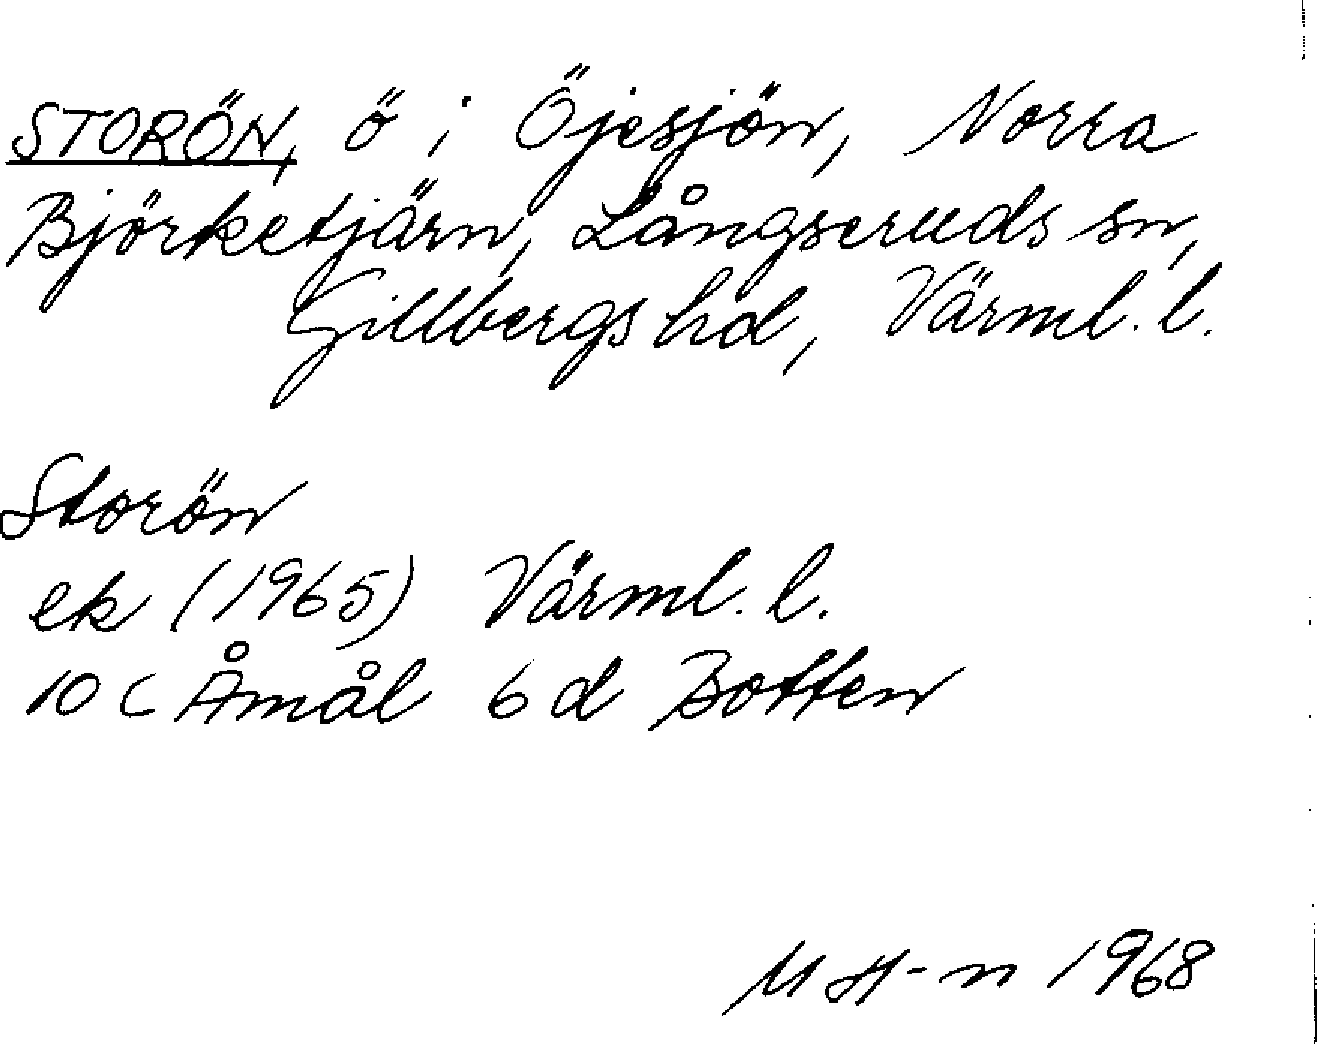 STORÖN, ö i Öjesjön, Norra
Björketjärn, Långseruds sn,
Gillbergs hd, Värml. l.
Storön
ek (1965) Värml. l.
10 C Åmål 6 d Botten
M H-n 1968